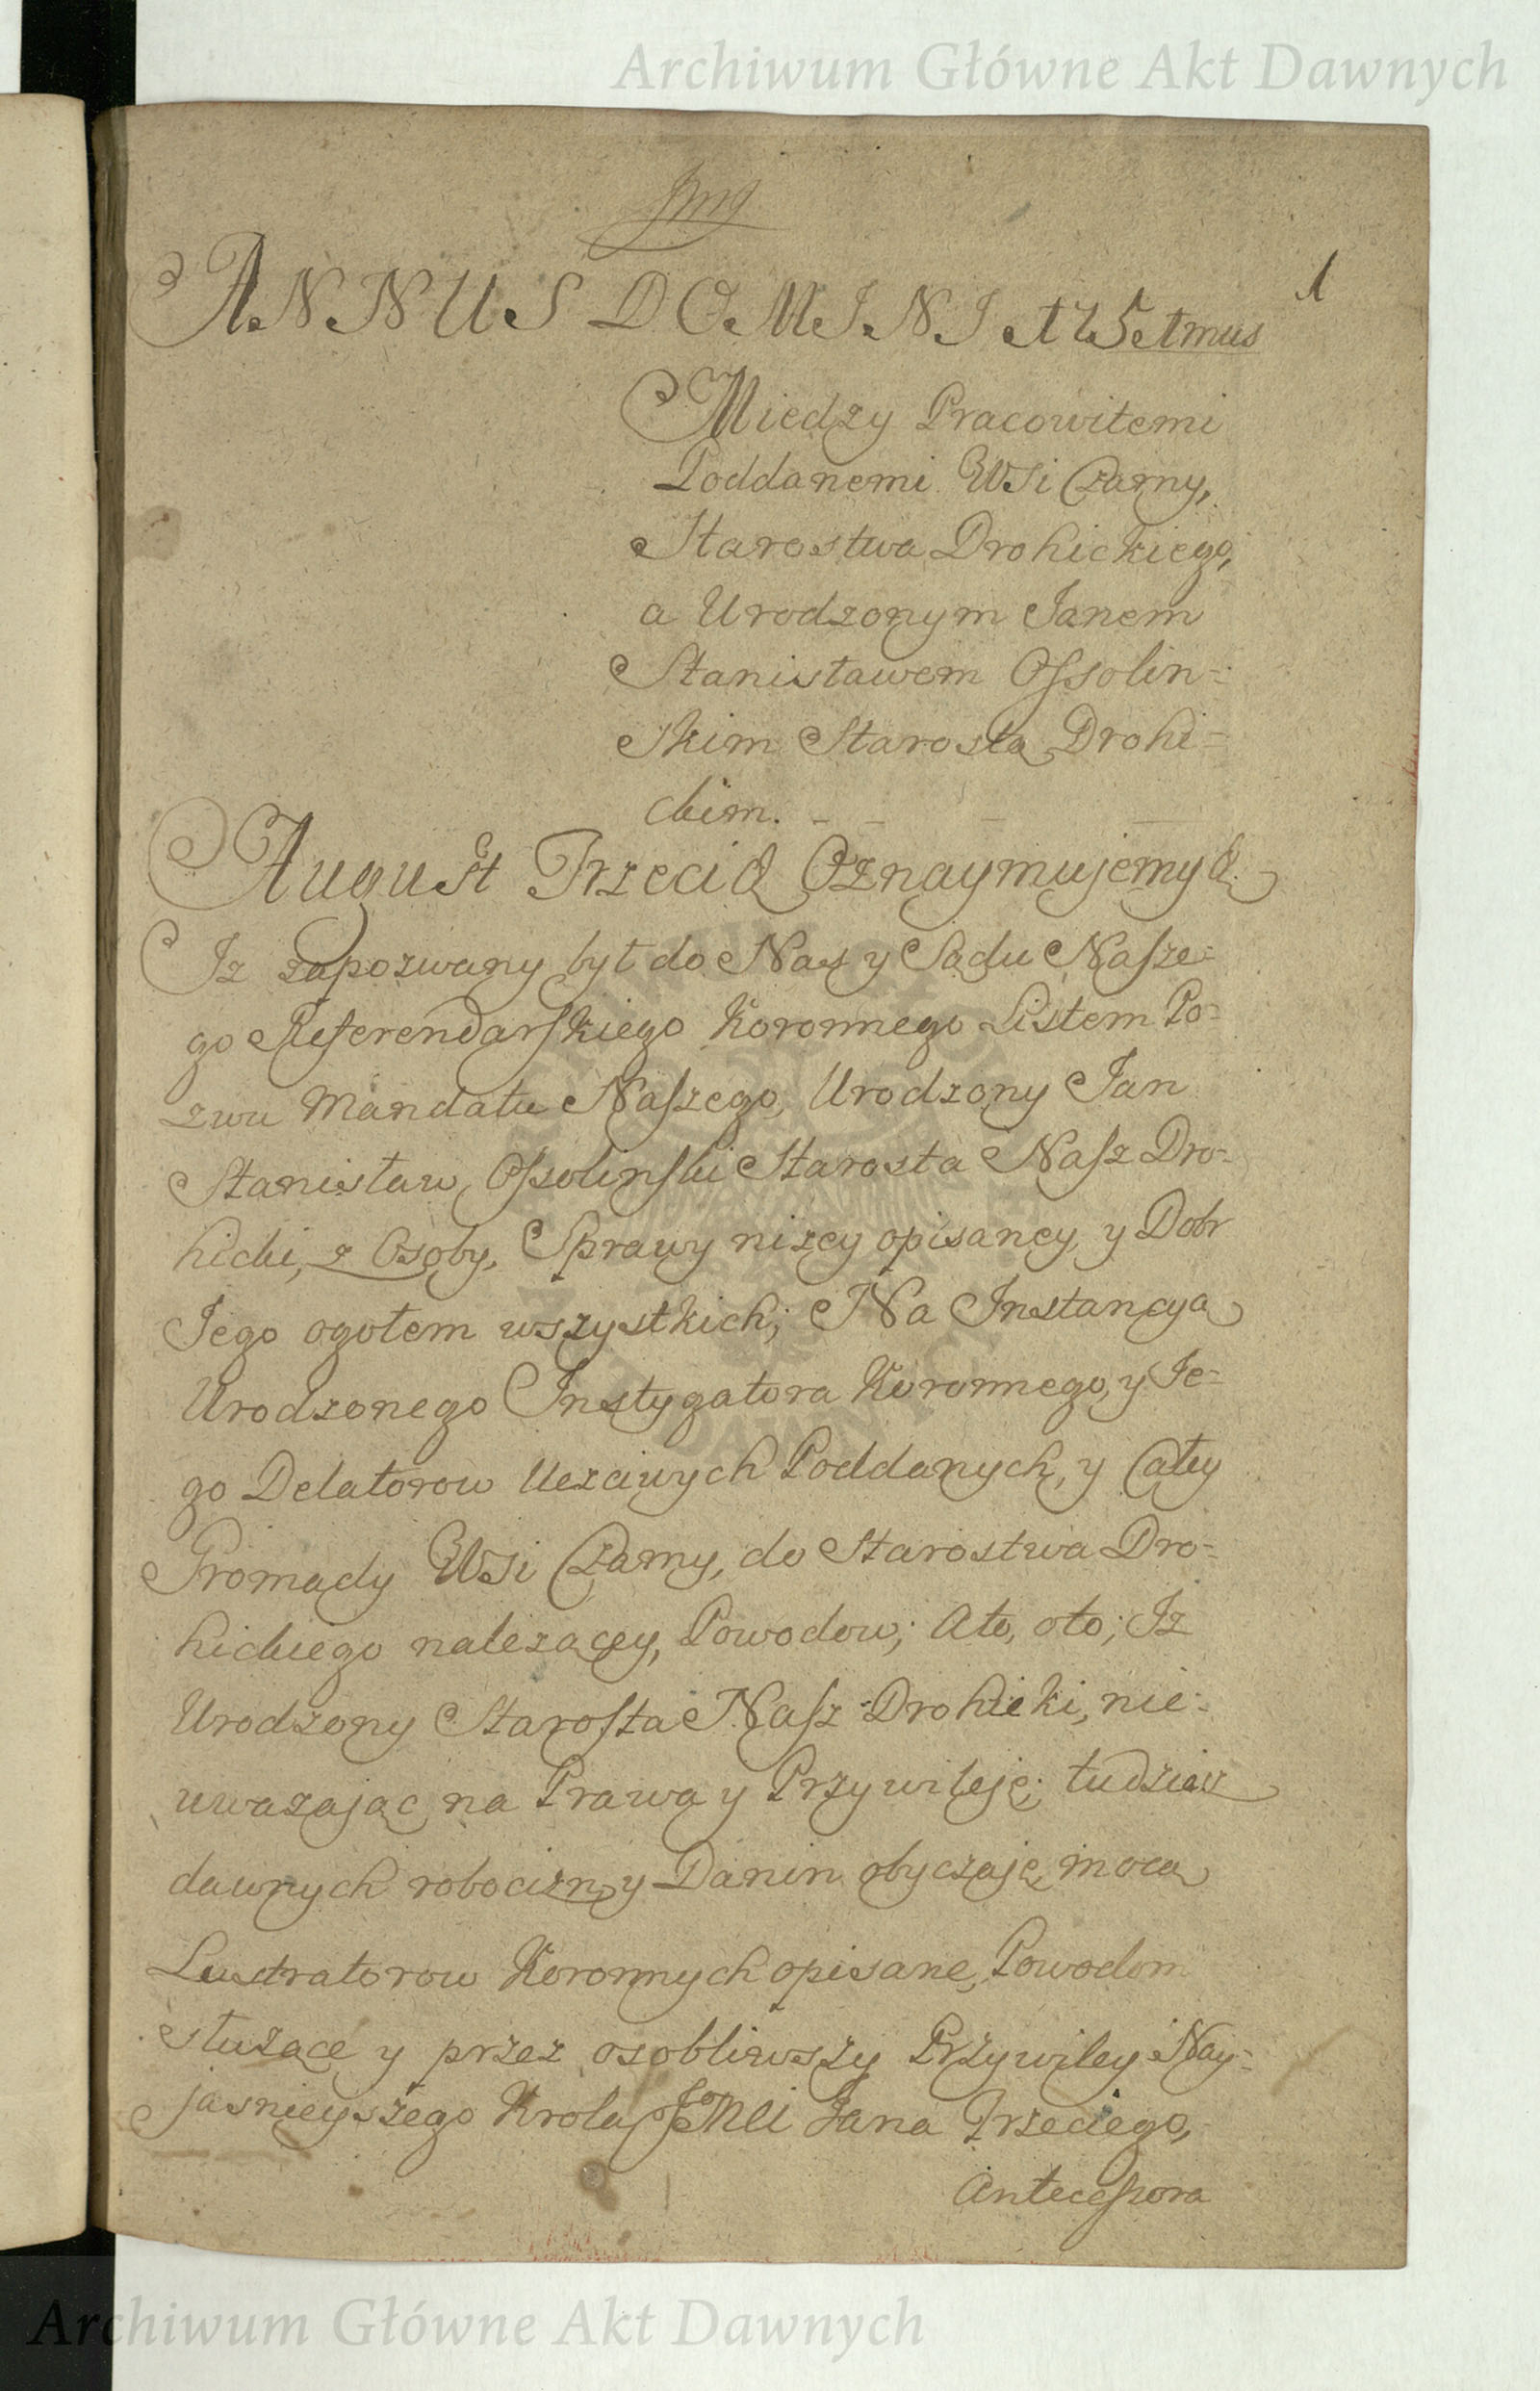 Archiwum Główne Akt Dawnych
1
ANNUS DOMINI 1751mus
Miedzy Pracowitemi
Poddanemi Wsi Czarny,
Starostwa Drohickiego,
a Urodzonym Janem
Stanisławem Ossolin=
skim Starostą Drohi=
ckim.
August Trzeci &. Oznaymujemy &.
Iz zapozwany był do Nas y Sądu Nasze=
go Referendarskiego Koronnego Listem Po=
zwu Mandatu Naszego, Urodzony Jan
Stanisław Ossolinski Starosta Nasz Dro=
hicki, z Osoby, Sprawy nizey opisaney, y Dobr
Jego ogołem wszystkich; Na Instancyą
Urodzonego Instygatora Koronnego, y Je=
go Delatorow Uczciwych Poddanych, y Całey
Gromady Wsi Czarny, do Starostwa Dro=
hickiego nalezącey, Powodow; Ato, oto; Iz
Urodzony Starosta Nasz Drohicki, nie=
uwazając na Prawa y Przywileje; tudziesz
dawnych robocizn y Danin obyczaje, mocą
Lustratorow Koronnych opisane, Powodom
słuzące y przez osobliwszy Przywiley Nay=
jasnieyszego Krola JoMci Jana Trzeciego,
Antecessora
Archiwum Główne Akt Dawnych